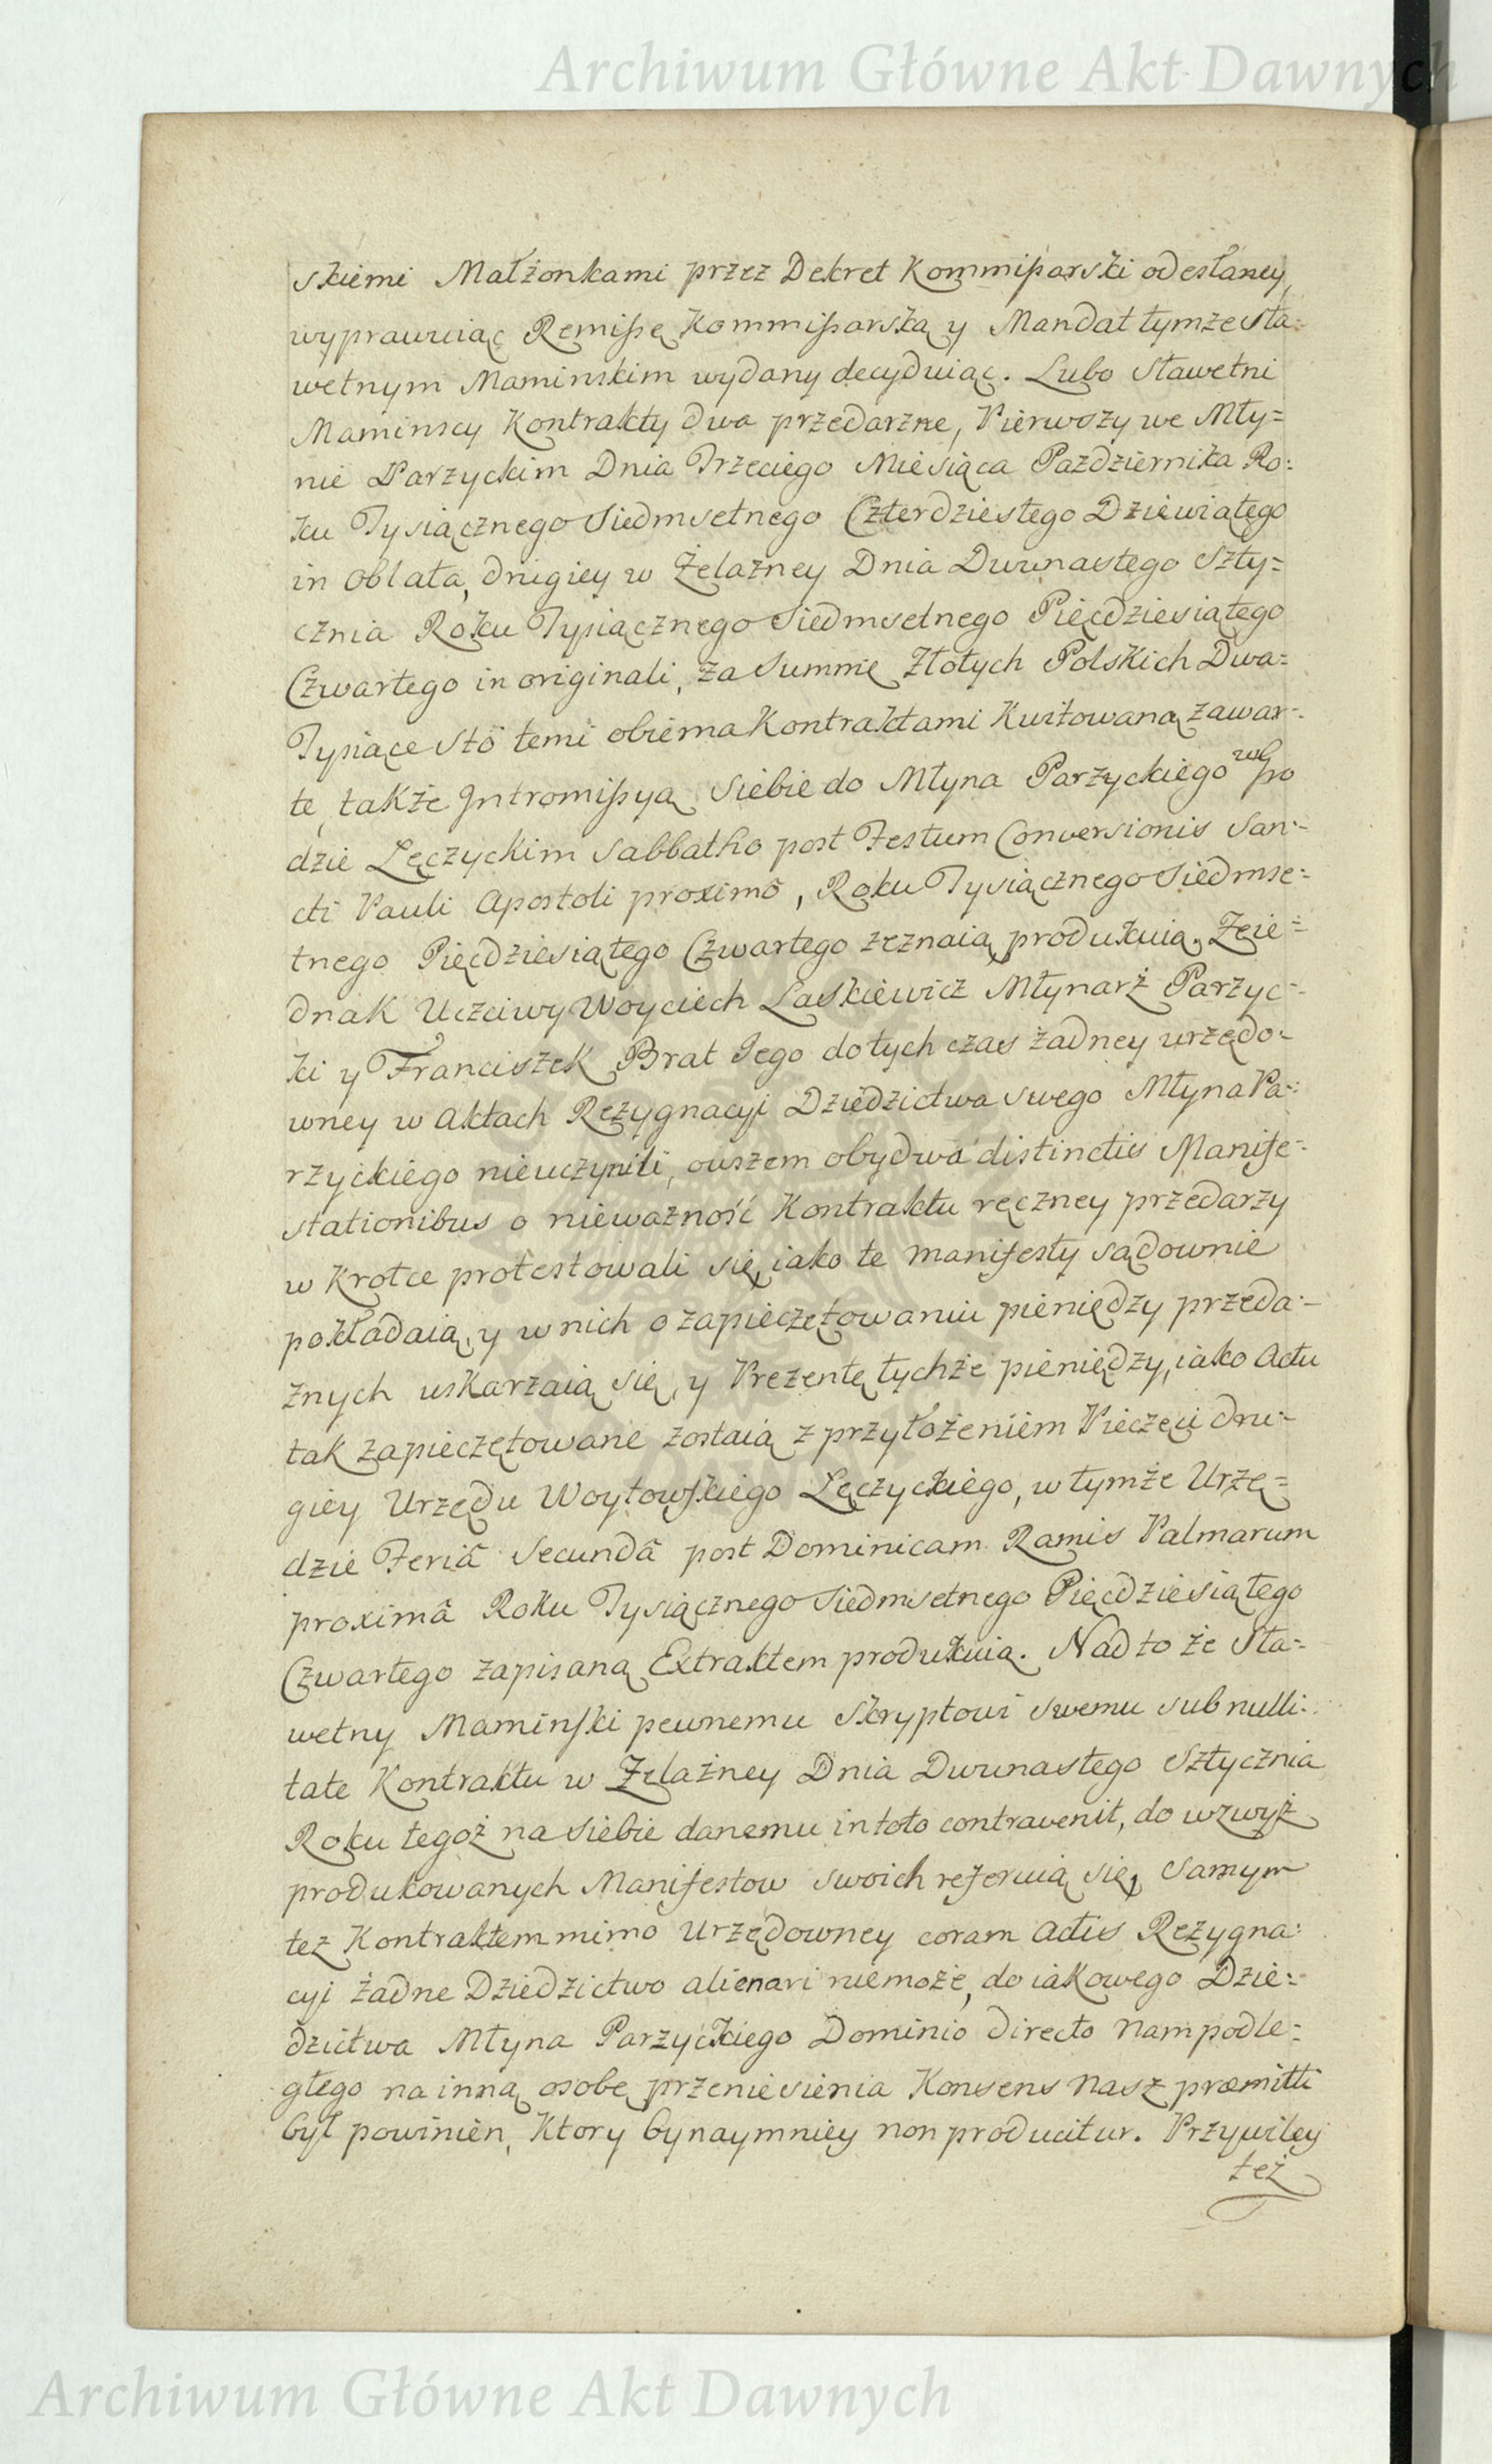 Archiwum Główne Akt Dawnych
skiemi Małżonkami przez Dekret Kommißarski odesłaney,
wyprawuiąc Remißę Kommißarską y Mandat tymże Sła=
wetnym Maminskim wydany decyduiąc. Lubo Sławetni
Maminscy Kontrakty dwa przedarzne, Pierwszy we Mły=
nie Parzyckim Dnia Trzeciego Miesiąca Pazdziernika Ro=
ku Tysiącznego Siedmsetnego Czterdziestego Dziewiątego
in oblata, drugiey w Żelazney Dnia Dwunastego Szty=
cznia Roku Tysiącznego Siedmsetnego Pięcdziesiątego
Czwartego in originali, za Summę Złotych Polskich Dwa=
Tysiące Stô temi obiema Kontraktami Kwitowaną zawar=
te, także Intromißyą Siebie do Młyna Parzyckiego
dzie Lęczyckim Sabbatho post Festum Conversionis San=
cti Pauli Apostoli proximô, Roku Tysiącznego Siedmse=
tnego Pięcdziesiątego Czwartego zeznaią, produkuią. Że ie=
dnak Uczciwy Woyciech Laskiewicz Młynarz Parzyc=
ki y Franciszek Brat Jego do tych czas żadney urzędo=
wney w aktach Rezygnacyi Dziedzictwa swego Młyna Pa=
rzyckiego nieuczynili, owszem obydwa distinctis Manife=
stationibus o nieważność Kontraktu ręczney przedarzy
w Krotce protestowali się, iako te manifesty sądownie
pokładaią, y w nich o zapieczętowaniu pieniędzy przeda=
żnych uskarzaią się, y Prezentę tychże pieniędzy, iako actu
tak zapieczętowane zostaią z przyłożeniem Pieczęci dru=
giey Urzędu Woytowskiego Lęczyckiego, w tymże Urzę=
dzie Feriâ Secundâ post Dominicam Ramis Palmarum
proximâ Roku Tysiącznego Siedmsetnego Pięcdziesiątego
Czwartego zapisaną Extraktem produkuią. Nad to że Sła=
wetny Maminski pewnemu Skryptowi swemu sub nulli=
tate Kontraktu w Żelażney Dnia Dwunastego Sztycznia
Roku tegoż na siebie danemu in toto contravenit, do wzwyż
produkowanych Manifestow swoich referuią się, Samym
tez Kontraktem mimo Urzędowney coram actis Rezygna=
cyi żadne Dziedzictwo alienari niemoże, do iakowego Dzie=
dzictwa Młyna Parzyckiego Dominio directo nam podle=
głego na inną osobę przeniesienia Konsens nasz præmitti
był powinien, Ktory bynaymniey non producitur. Przywiley
też
Archiwum Główne Akt Dawnych